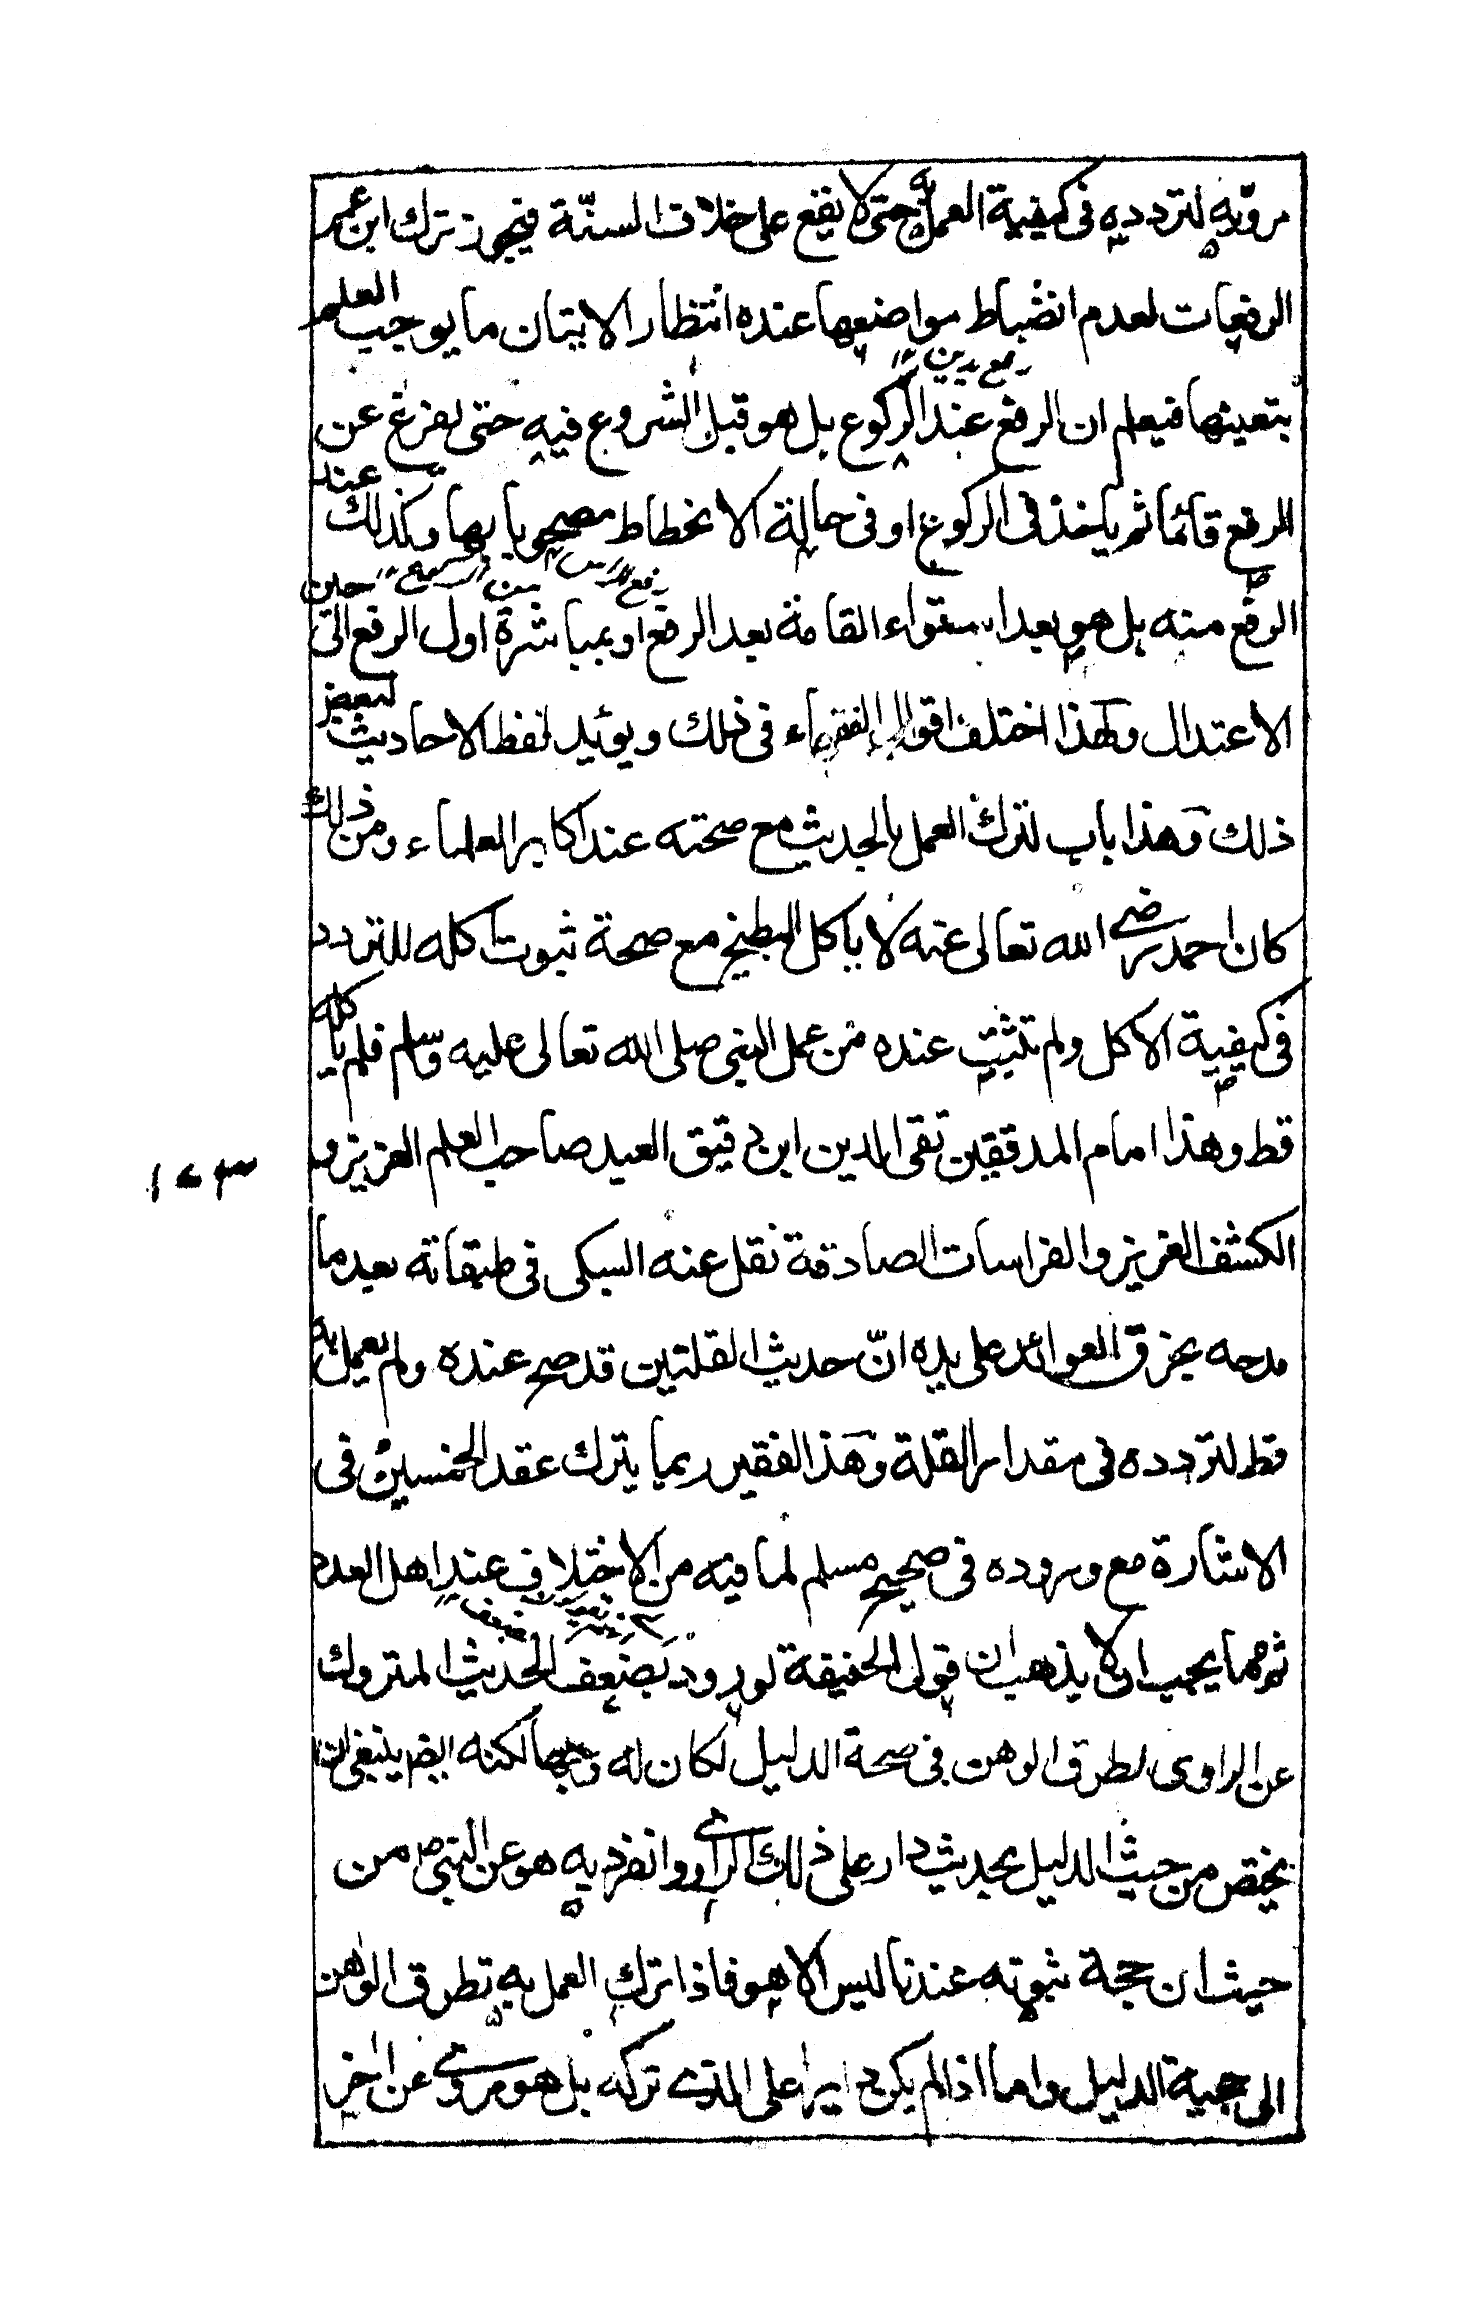 مرويه لتردده في كيفية العمل به حتى لا يقع على خلاف السنّة فيجوز ترك ابن عمر
الرفعات لعدم انضباط مواضعها عنده انتظار الاتيان ما يوجب العلم
بتعينها فيعلم ان الرفع عند الركوع بل هو قبل الشروع فيه حتى يفرغ عن
رفع يدين
الرفع قائما ثم ياخذ في الركوع او في حالة الانحطاط مصحوبا بها وكذلك عند
الرفع منه بل هو بعد استواء القامة بعد الرفع او بمباشرة اول الرفع الى حين
الاعتدال ولهذا اختلف اقوال الفقهاء في ذلك ويؤيد لفظ الاحاديث لبعض
ذلك وهذا باب لترك العمل بالحديث مع صحته عند اكابر العلماء ومن ذلك
كان احمد رضي الله تعالى عنه لا ياكل البطيخ مع صحة ثبوت اكله للتردد
في كيفية الاكل ولم تثبت عنده من عمل النبي صلى الله تعالى عليه وسلم فلم ياكله
قط وهذا امام المدققين تقي الدين ابن دقيق العيد صاحب العلم العزيز و
١٧٣
الكشف العزيز والفراسات الصادقة نقل عنه السبكي في طبقاته بعد ما
مدحه بخرق العوائد على يده انّ حديث القلتين قد صح عنده ولم يعمل به
قط لتردده في مقدار القلة وهذا الفقير ربما يترك عقد الخمسين في
الاشارة مع وروده في صحيح مسلم لما فيه من الاختلاف عند اهل العدد
ثم مما يجب ان لا يذهب ان قول الحنيفة لورود بضعف الحديث المتروك
عن الراوي لطرق الوهن في صحة الدليل لكان له وجها لكنه ايضا ينبغي ان
يختص من حيث الدليل بحديث دار على ذلك الراوي وانفرد به هو عن النبي ص من
حيث ان حجة ثبوته عندنا ليس الا هو فاذا ترك العمل به تطرق الوهن
الى حجية الدليل واما اذا لم يكن دايرا على الذي تركه بل هو مروي عن اخر